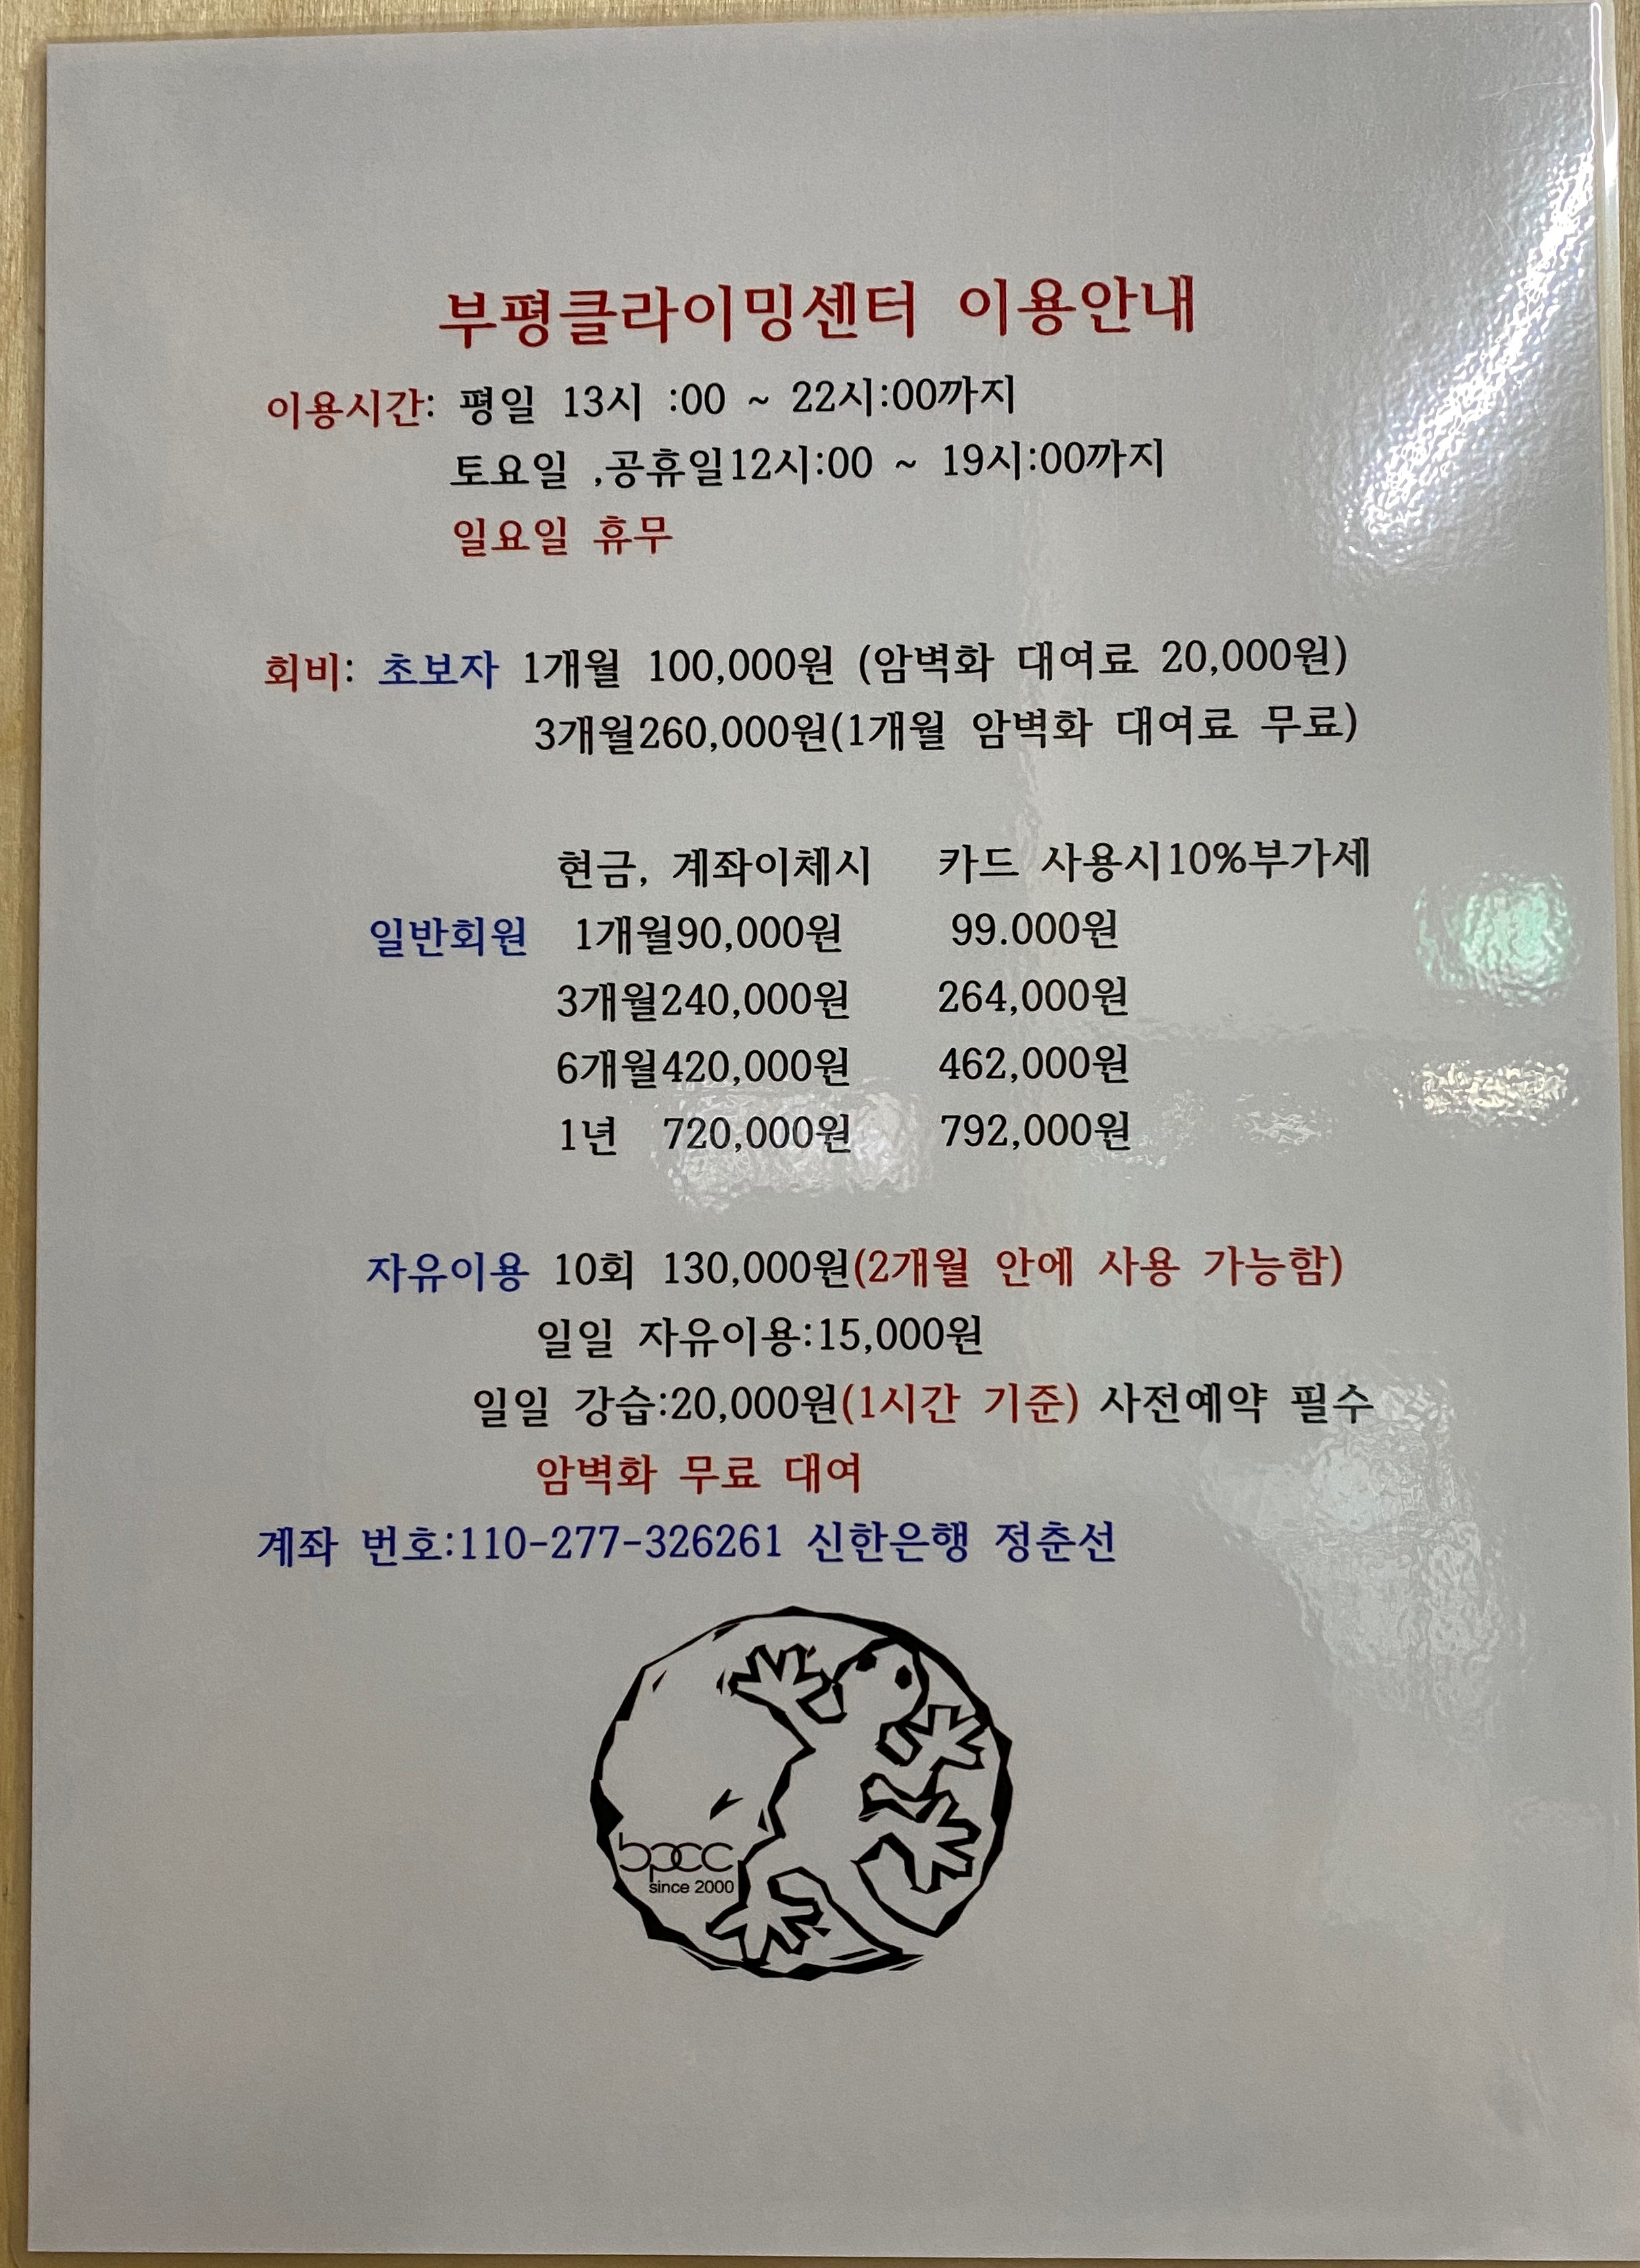 부평클라이밍센터 이용안내
이용시간: 평일 13시 :00 ~ 22시:00까지
토요일 ,공휴일12시:00 ~ 19시:00까지
일요일 휴무
회비: 초보자 1개월 100,000원 (암벽화 대여료 20,000원)
3개월260,000원(1개월 암벽화 대여료 무료)
현금, 계좌이체시 카드 사용시10%부가세
일반회원 1개월90,000원 99.000원
3개월240,000원 264,000원
6개월420,000원 462,000원
1년 720,000원 792,000원
자유이용 10회 130,000원(2개월 안에 사용 가능함)
일일 자유이용:15,000원
일일 강습:20,000원(1시간 기준) 사전예약 필수
암벽화 무료 대여
계좌 번호:110-277-326261 신한은행 정춘선
bpcc
since 2000